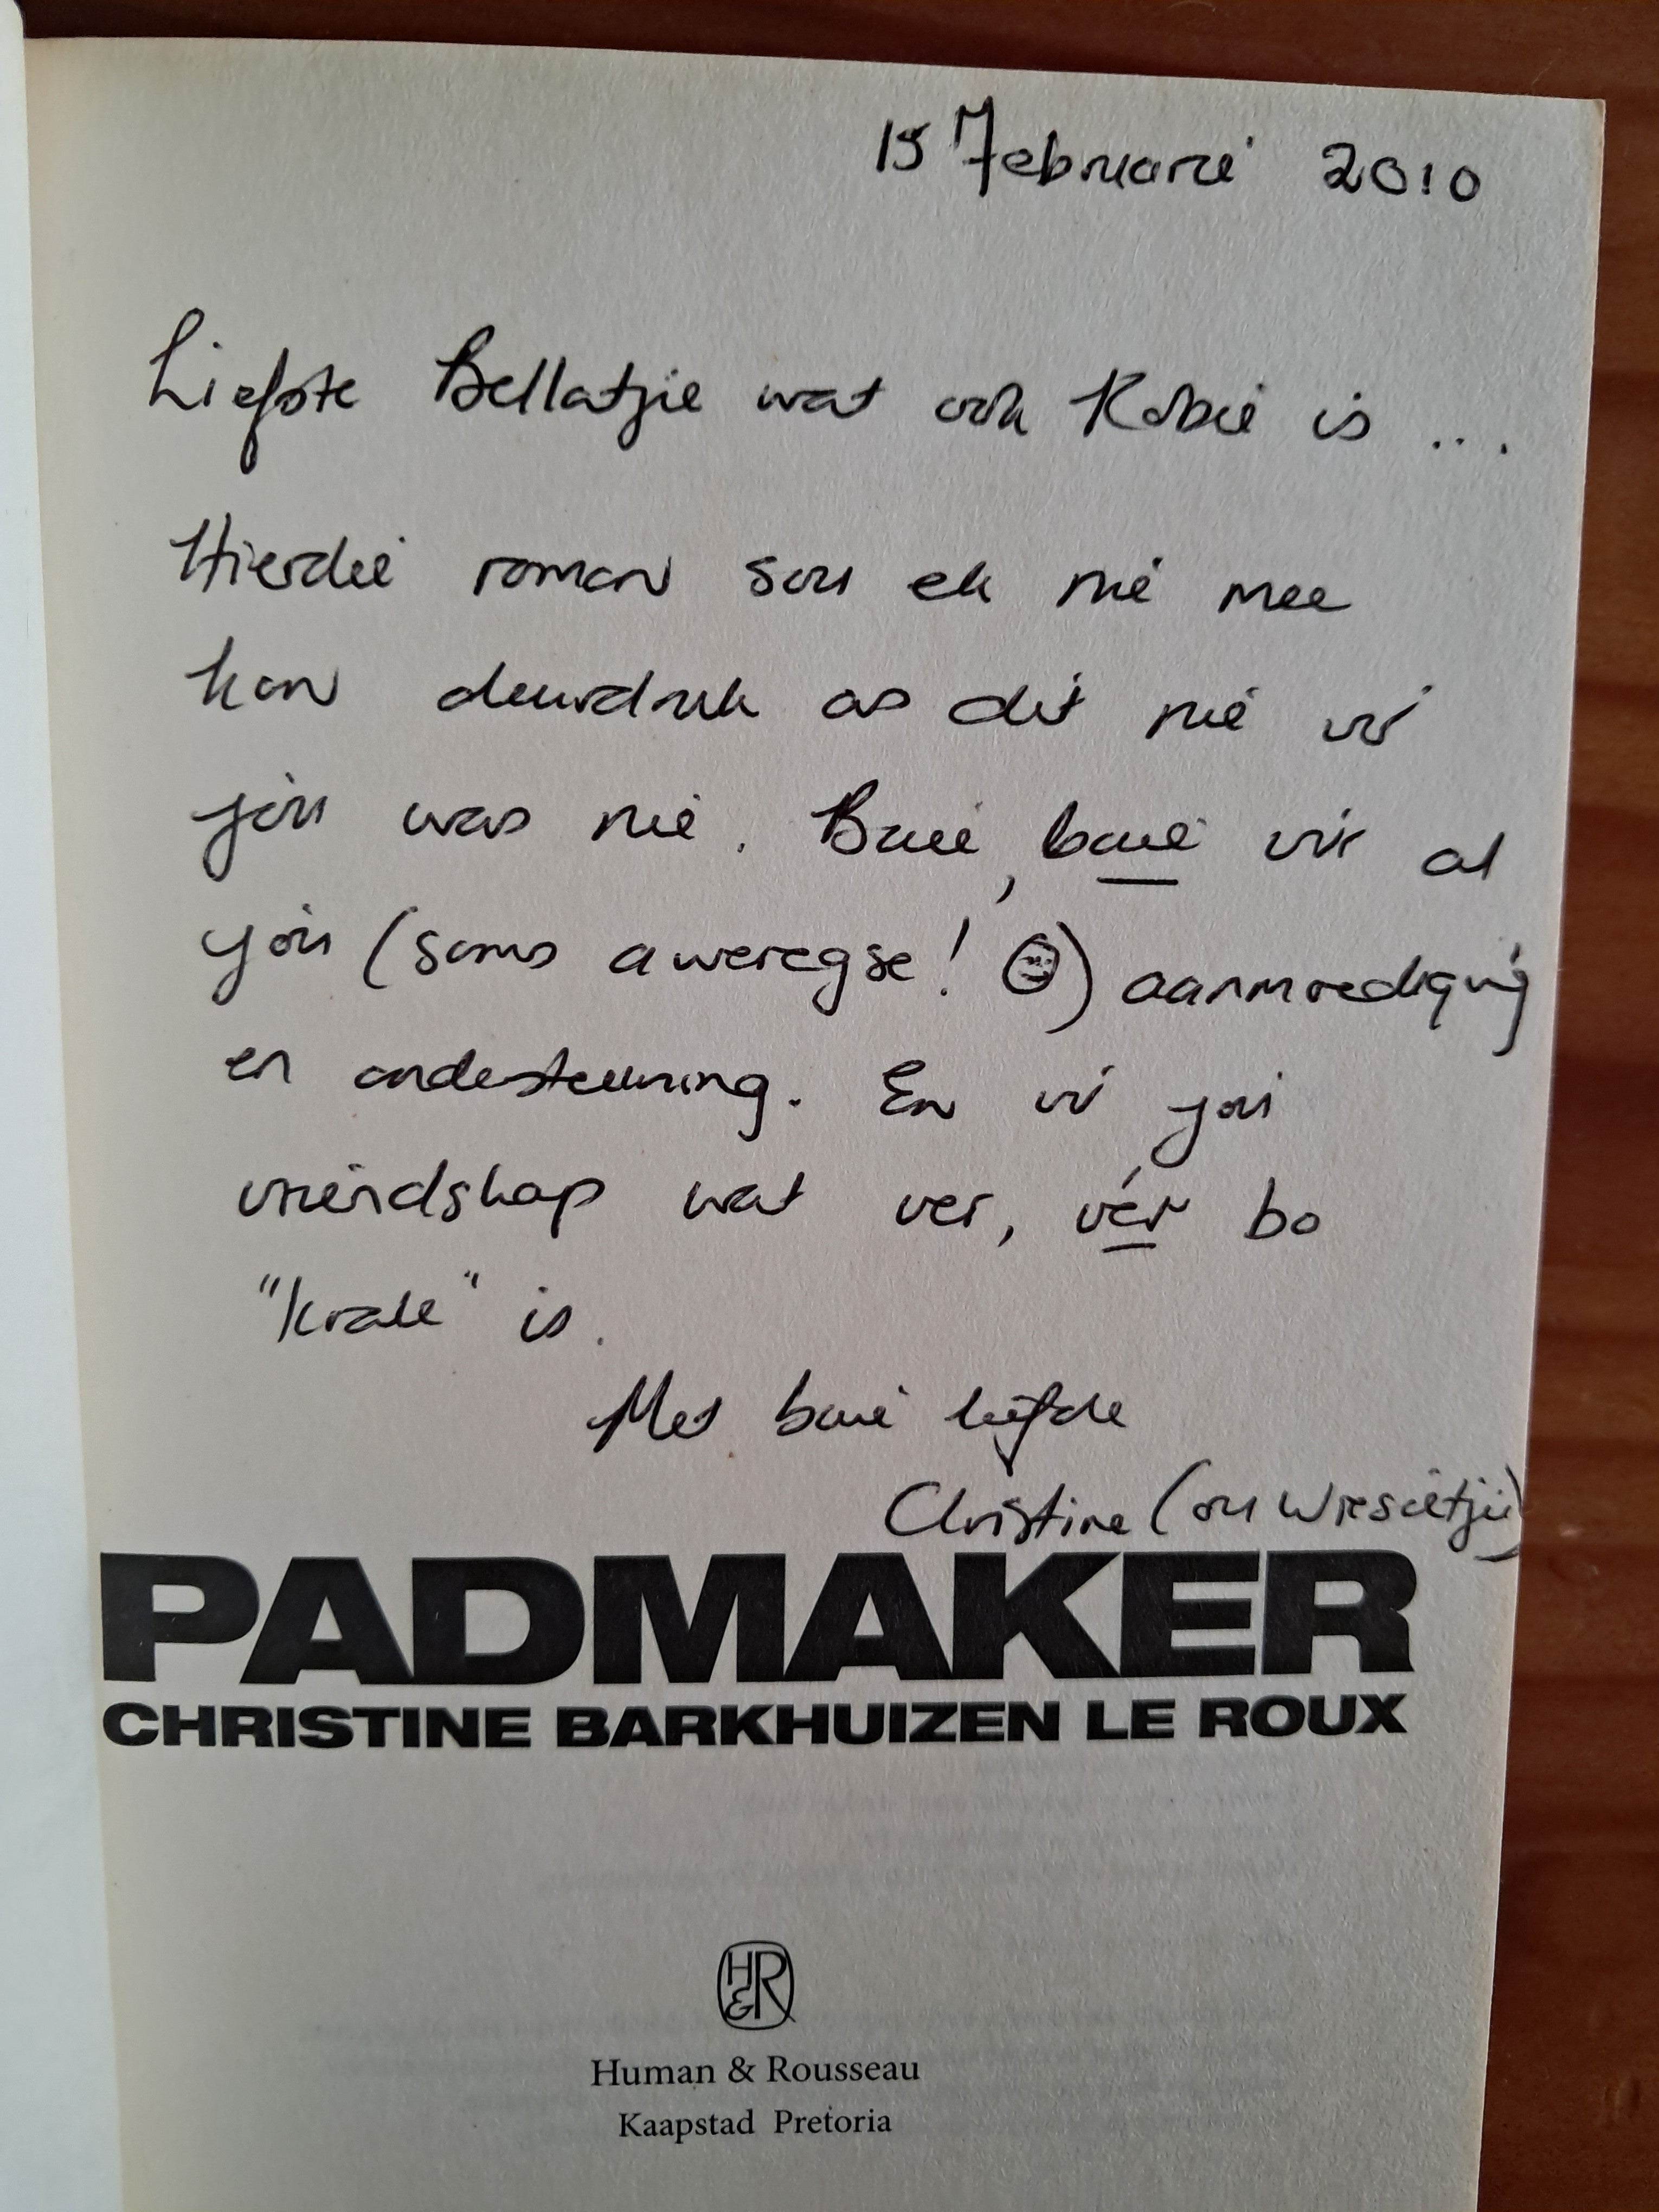 15 Februarie 2010
Liefste Bellatjie wat ook Kobie is ...
Hierdie roman sou ek nie mee
kon deurdruk as dit nie vir
jou was nie. Baie, baie vir al
jou (soms aweregse! ☺) aanmoediging
en ondersteuning. En vir jou
vriendskap wat ver, vér bo
"krale" is.
Met baie liefde
Christine (ou Wieseltjie)
PADMAKER
CHRISTINE BARKHUIZEN LE ROUX
H&R
Human & Rousseau
Kaapstad Pretoria